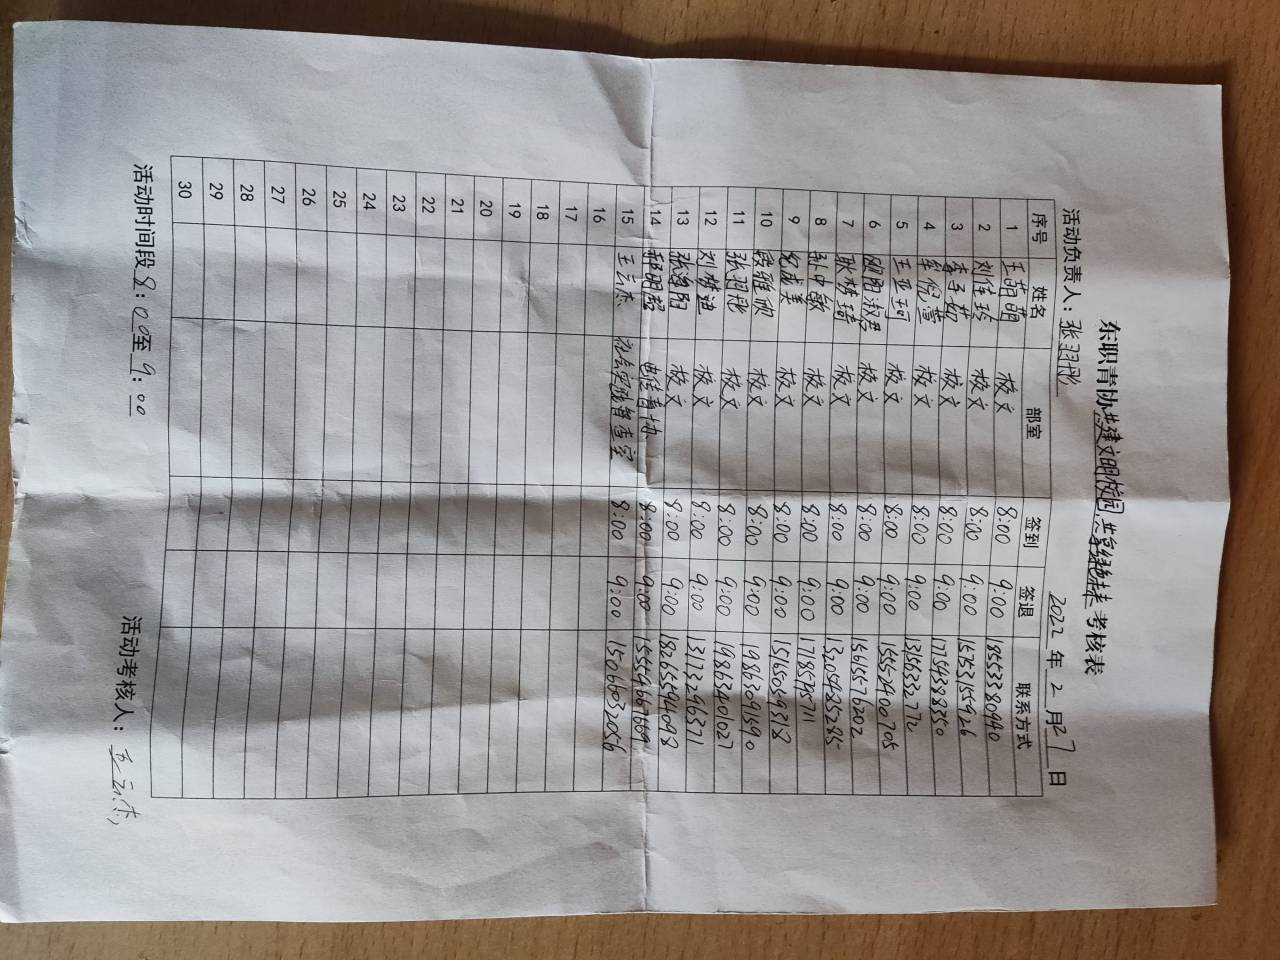 东职青协共建文明校园,共享绿色未来考核表
活动负责人:张羽彤 2022年2月27日
序号 姓名 部室 签到 签退 联系方式
1 王萌萌 校文 8:00 9:00 18553380940
2 刘佳玲 校文 8:00 9:00 15753155926
3 李子茹 校文 8:00 9:00
4 校文 8:00 9:00 17543888350
5 王亚珂 校文 8:00 9:00
6 校文 8:00 9:00 15552402705
7 耿梦琦 校文 8:00 9:00 15615576202
8 孙中敏 校文 8:00 9:00 13205435285
9 校文 8:00 9:00
10 殷雅欣 校文 8:00 9:00 15165059318
11 张羽彤 校文 8:00 9:00 19863091590
12 刘梦迪 校文 8:00 9:00 19863401027
13 张海阳 校文 8:00 9:00 13173296371
14 郑明超 电信青协 8:00 9:00
15 王云杰 社会实践督查室 8:00 9:00 15066032056
16
17
18
19
20
21
22
23
24
25
26
27
28
29
30
活动时间段8:00至9:00 活动考核人:王云杰